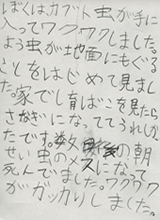 ぼくは、カブト虫が手に
入ってワクワクしました。
よう虫が地面にもぐる
ことをはじめて見まし
た。家でし育ばこを見たら
さなぎになっててうれし
たです。数日後の朝
せい虫のメスになって
死んでました。ワクワク
がガッカリしました。